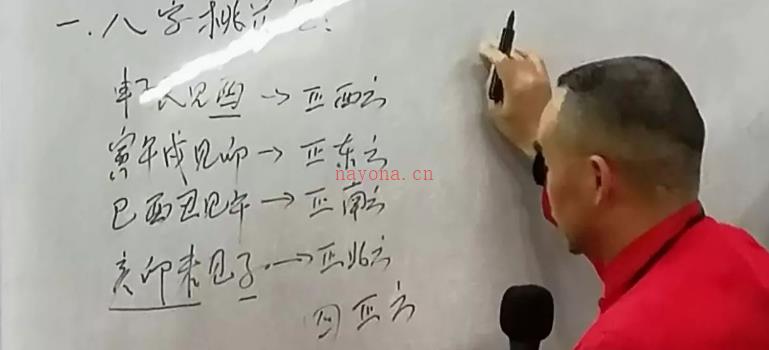 一.八字桃花
申子辰见酉→正西方
寅午戌见卯→正东方
巳酉丑见午→正南方
亥卯未见子→正北方
四正方
nayona.cn